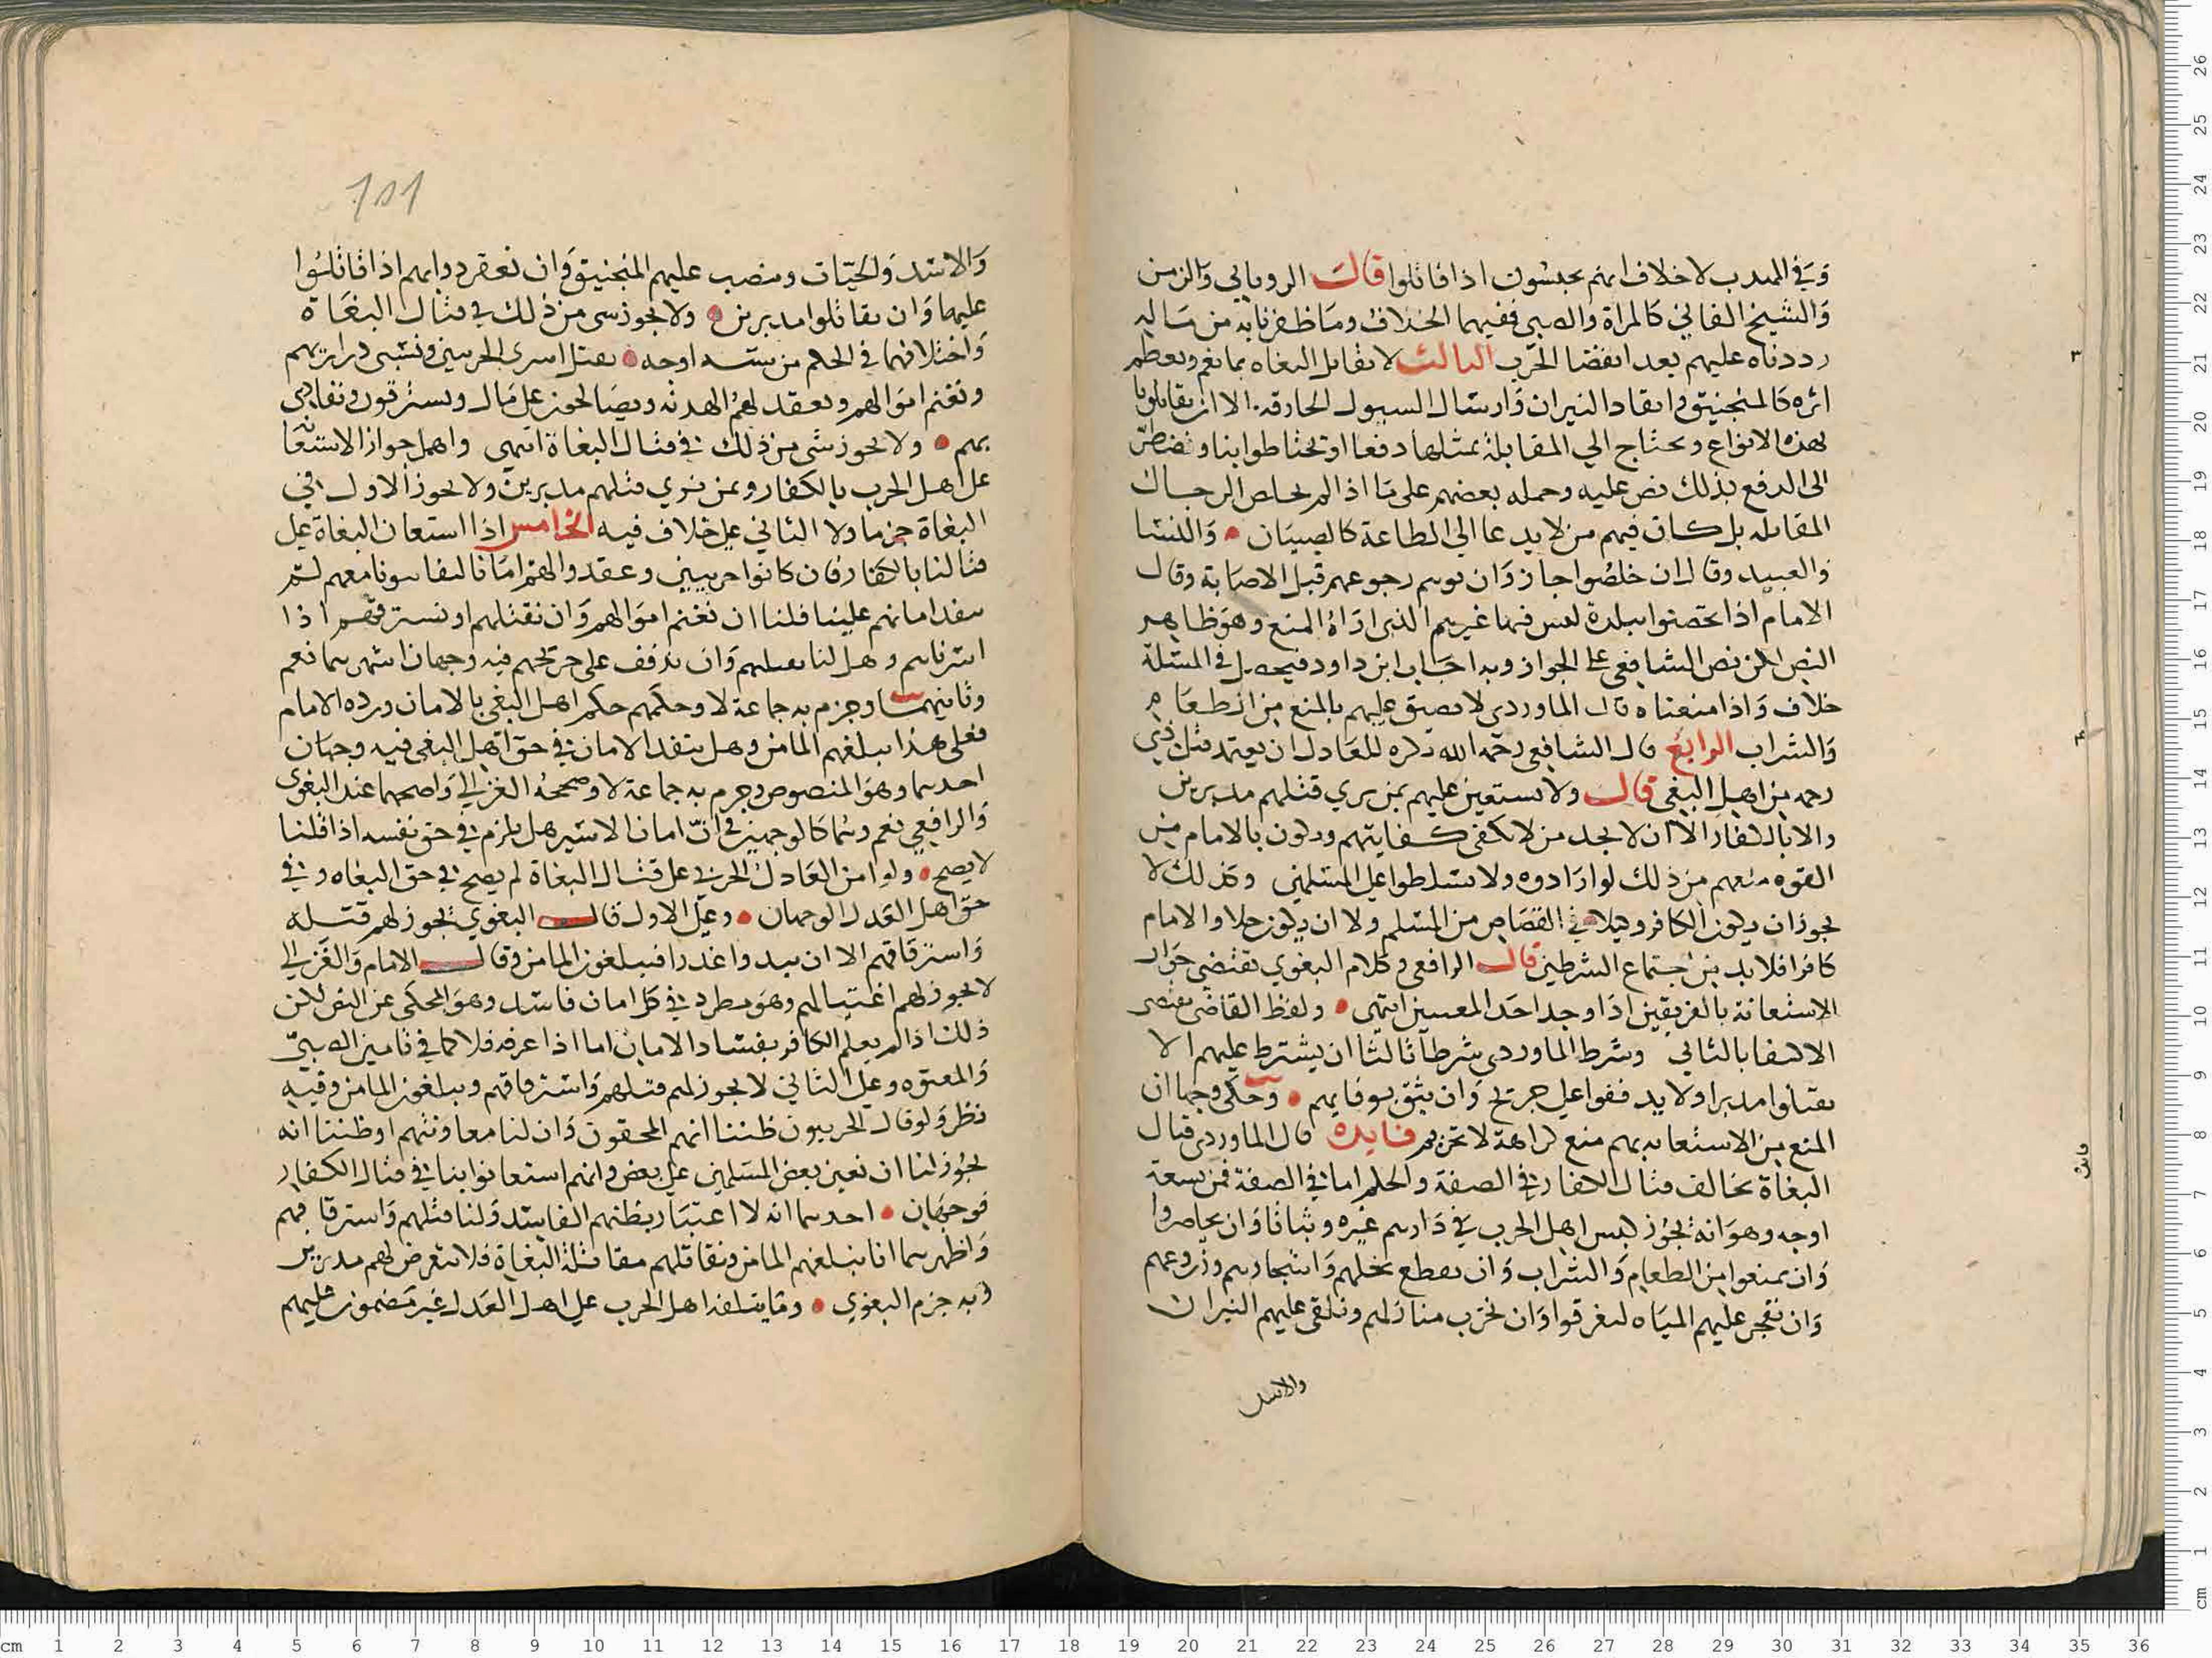 وفي المهذب لا خلاف انهم يحبسون اذا قاتلوا قال الروياني والزمن
والشيخ الفاني كالمراة والصبي ففيهما الخلاف وما ظفرنا به من ماله
رددناه عليهم بعد انقضا الحرب الثالث لا يقاتل البغاه بما يعم ويعظم
اثره كالمنجنيق وايقاد النيران وارسال السيول الجارفة الا ان يقاتلونا
بهذه الانواع ونحتاج الي المقابلة بمثلها دفعا او تحتاطوا بنا ونضطر
الى الدفع بذلك نص عليه وحمله بعضهم على ما اذا لم الرجال
المقاتله بل كان فيهم من لا يدعا الى الطاعة كالصبيان والنسا
والعبيد وقال ان خلصوا جاز وان توسم رجوعهم قبل الاصابة وقال
الامام اذا تحصنوا ببلدة ليس فيها غيرهم الذي اراه المنع وهو ظاهر
النص لكن نص الشافعي على الجواز وبه اجاب ابن داود فيحصل في المسئلة
خلاف واذا منعناه قال الماوردي لا نضيق عليهم بالمنع من الطعام
والشراب الرابع قال الشافعي رحمه الله نكره للعادل ان يعتمد قتل ذي
رحمه من اهل البغي قال ولا نستعين عليهم بمن يري قتلهم مدبرين
والا بالكفار الا ان لا يجد من لا تكفى كفايتهم ويكون بالامام من
القوه منعهم من ذلك لو ارادوه ولا تسلطوا على المسلمين وكذلك لا
يجوز ان يكون الكافر وكيلا في القصاص من المسلم ولا ان يكون جلادا والامام
كافرا فلابد من اجتماع الشرطين قال الرافعي وكلام البغوي يقتضي جواز
الاستعانة بالفريقين اذا وجد احد المعنيين انتهى ولفظ القاضي يقتضي
الاكتفا بالثاني وشرط الماوردي شرطا ثالثا ان يشترط عليهم الا
يقتلوا مدبرا ولا يدففوا على جريح وان يثق بوفايهم وحكى وجها ان
المنع من الاستعانه بهم منع كراهة لا تحريم فايدة قال الماوردي قتال
البغاة يخالف قتال الكفار في الصفة والحكم اما في الصفة فمن تسعة
اوجه وهو انه يجوز كبس اهل الحرب في دارهم غرة وبثاتا وان يحاصروا
وان يمنعوا من الطعام والشراب وان يقطع نخلهم واشجارهم وزروعهم
وان نفجر عليهم المياه ليغرقوا وان نخرب منازلهم ونلقي عليهم النيران
والاسد
٣
فايدة
101
والاسد والحيات وينصب عليهم المنجنيق وان نعقر دوابهم اذا قاتلوا
عليها وان يقاتلوا مدبرين ولا يجوز شي من ذلك في قتال البغاة
واختلافهما في الحكم من ستة اوجه يقتل اسرى الحربيين ونسبى ذراريهم
ونغنم اموالهم ويعقد لهم الهدنه ويصالحوز على مال ويسترقون ونفادي
بهم ولا يجوز شي من ذلك في قتال البغاة انتهى واهمل جواز الاستعا
على اهل الحرب بالكفار وبمن يري قتلهم مدبرين ولا يجوز الاول في
البغاة جزما ولا الثاني على خلاف فيه الخامس اذا استعان البغاة على
قتالنا بالكفار فان كانوا حربيين وعقدوا لهم امانا ليقاتلونا معهم لم
ينفد امانهم علينا فلنا ان نغنم اموالهم وان نقتلهم او نسترقهم اذا
اسرناهم وهل لنا وان ندفف على جريحهم فيه وجهان اشهرهما نعم
وثانيهما وجزم به جماعة لا وحكمهم حكم اهل البغي بالامان ورده الامام
فعلى هذا نبلغهم المامن وهل ينفد الامان في حق اهل البغي فيه وجهان
احدهما وهو المنصوص وجزم به جماعة لا وصححه الغزالي واصحهما عند البغوي
والرافعي نعم وهما كالوجهين في ان امان الاسير هل يلزم في حق نفسه اذا قلنا
لا يصح ولو امن العادل الحربي على قتال البغاة لم يصح في حق البغاه وفي
حق اهل العدل الوجهان وعلى الاول قال البغوي يجوز لهم قتله
واسترقاقهم الا ان يبدوا عذرا فنبلغوز المامن وقال الامام والغزالي
لا يجوز لهم اغتيالهم وهو مطرد في كل امان فاسد وهو المحكى عن النص لكن
ذلك اذا لم يعلم الكافر بفساد الامان اما اذا عرفه فلا كما في تامين الصبي
والمعتوه وعلى الثاني لا يجوز لهم قتلهم واسترقاقهم ونبلغوز المامن وفيه
نظر ولو قال الحربيون ظننا انهم المحقون وان لنا معاونتهم او ظننا انه
يجوز لنا ان نعين بعض المسلمين على بعض وانهم استعانوا بنا في قتال الكفار
فوجهان احدهما انه لا اعتبار بظنهم الفاسد ولنا قتلهم واسترقاقهم
واظهرهما انا نبلغهم المامن ونقاتلهم مقاتلة البغاة فلا نتعرض لهم مدبرين
وبه جزم البغوي وما يتلفه اهل الحرب على اهل العدل غير مضمون عليهم